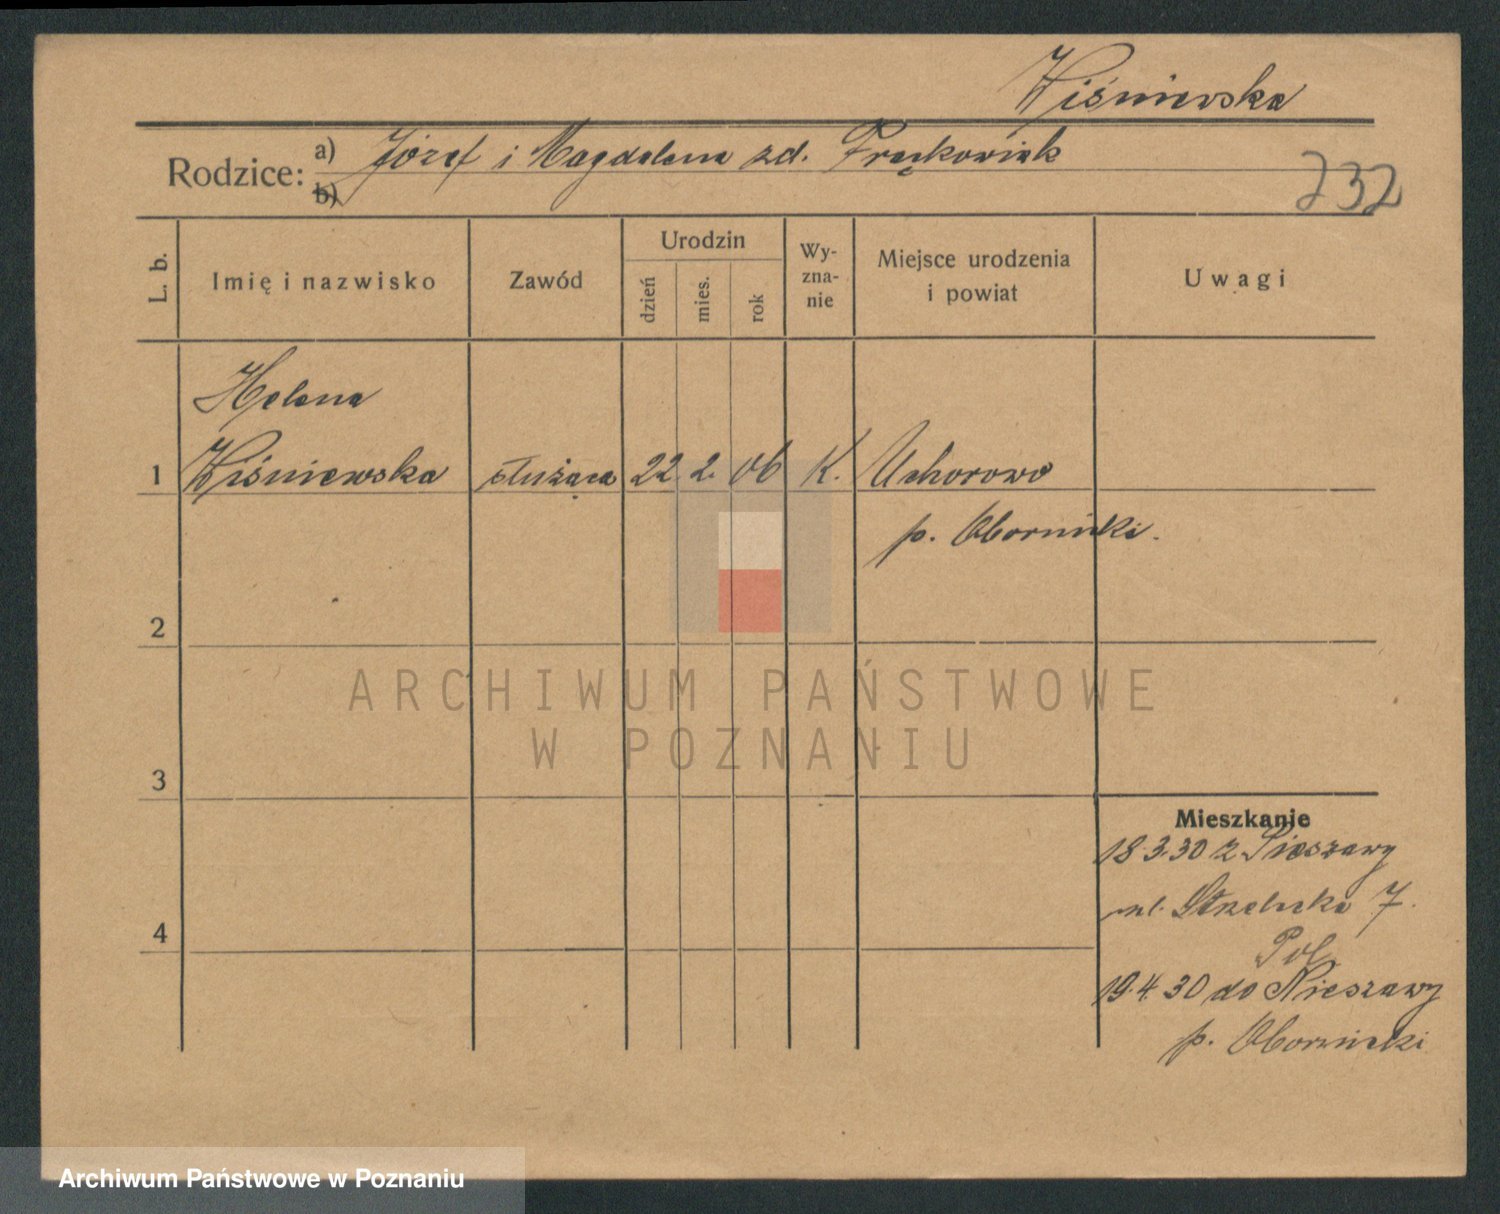 Wiśniewska
Rodzice: a) Józef i Magdalena zd. Frąckowiak
b)
732
L. b.
Imię i nazwisko
Zawód
Urodzin
dzień
mies.
rok
Wy-
zna-
nie
Miejsce urodzenia
i powiat
Uwagi
Helena
1 Wiśniewska służąca 22 2. 06 K. Uchorowo
p. Oborniki.
2
ARCHIWUM PAŃSTWOWE
W POZNANIU
3
Mieszkanie
18.3.30 z
ul. Strzelecka 7.
4
Pol.
19.4.30 do Nieszawy
p. Oborniki
Archiwum Państwowe w Poznaniu